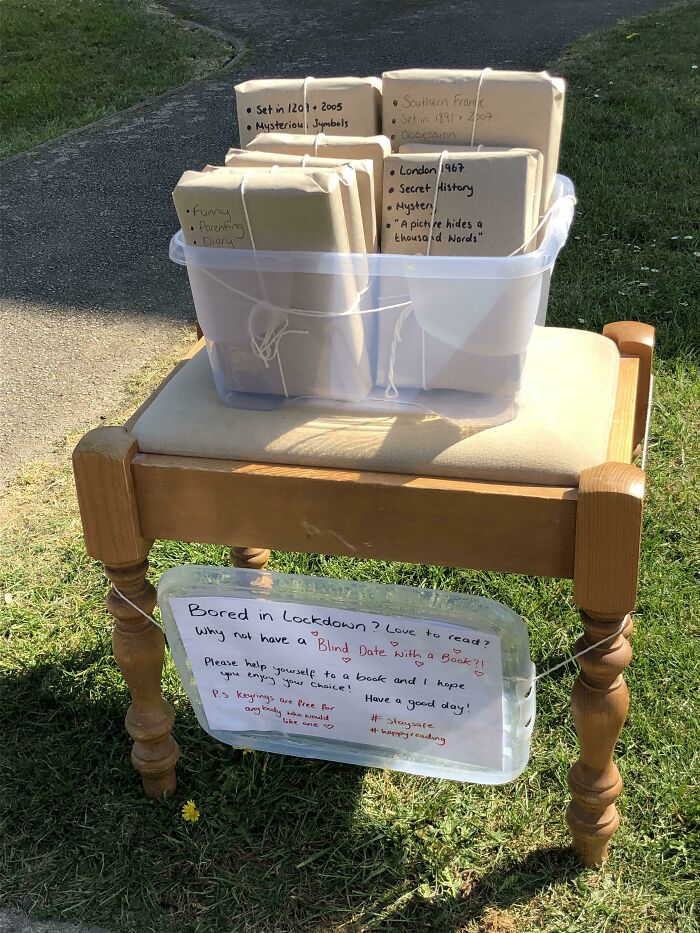 • Set in 1209 + 2005
• Mysterious Symbols
• Southern France
• Set in 1891 + 2007
• Obsession
• London 1967
• Secret History
• Mystery
• "A picture hides a
thousand words"
• Funny
• Parenting
• Diary
Bored in Lockdown? Love to read?
Why not have a Blind Date with a Book?!
Please help yourself to a book and I hope
you enjoy your choice!
Have a good day!
P.S Keyrings are free for
anybody who would
like one ♡
# staysafe
# happyreading